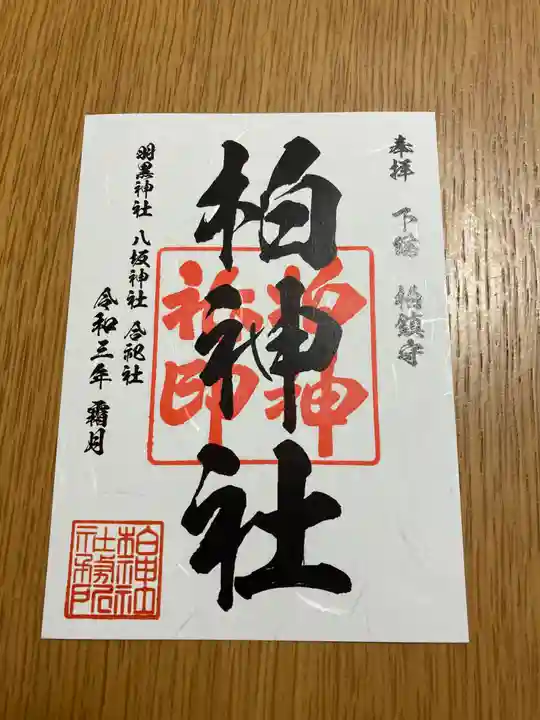 奉拝 下総 柏鎮守
柏神社
柏神社印
羽黒神社 八坂神社 合祀社
令和三年 霜月